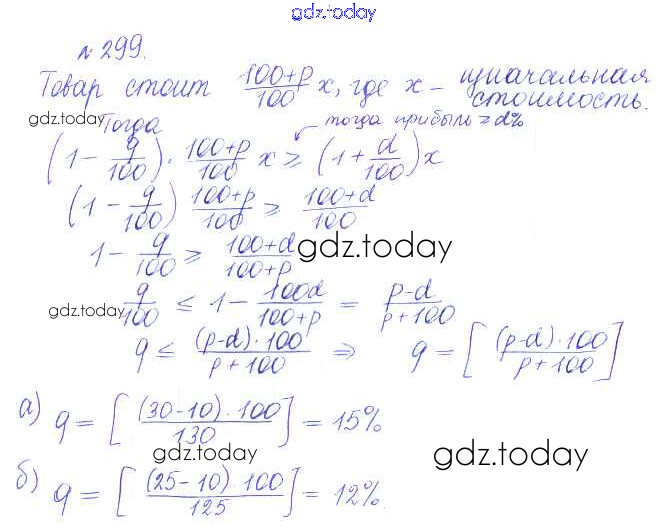 gdz.today
№ 299.
Товар стоит (100+p)/100 x, где x – изначальная стоимость.
gdz.today
Тогда
тогда прибыль ≥ d%
(1 − q/100) · (100+p)/100 x ≥ (1 + d/100)x
(1 − q/100) (100+p)/100 ≥ (100+d)/100
1 − q/100 ≥ (100+d)/(100+p)
gdz.today
gdz.today
q/100 ≤ 1 − 100d/(100+p) = (p−d)/(p+100)
q ≤ (p−d)·100/(p+100) ⇒ q = [(p−d)·100/(p+100)]
а) q = [(30−10)·100/130] = 15%
gdz.today
gdz.today
б) q = [(25−10) 100/125] = 12%.